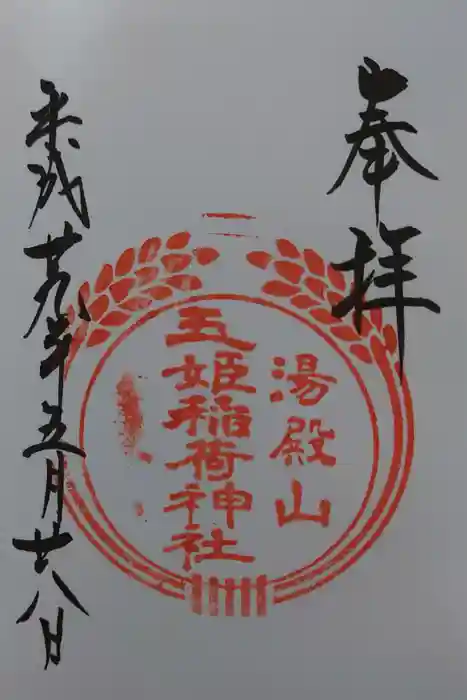 奉拝
湯殿山
玉姫稲荷神社
平成廿九年五月廿八日